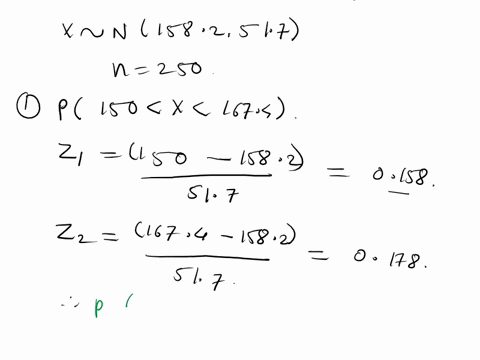 X ~ N (158.2, 51.7)
n = 250.
① P( 150 < X < 167.4).
Z1 = (150 - 158.2) / 51.7 = 0.158.
Z2 = (167.4 - 158.2) / 51.7. = 0.178.
∴ P (